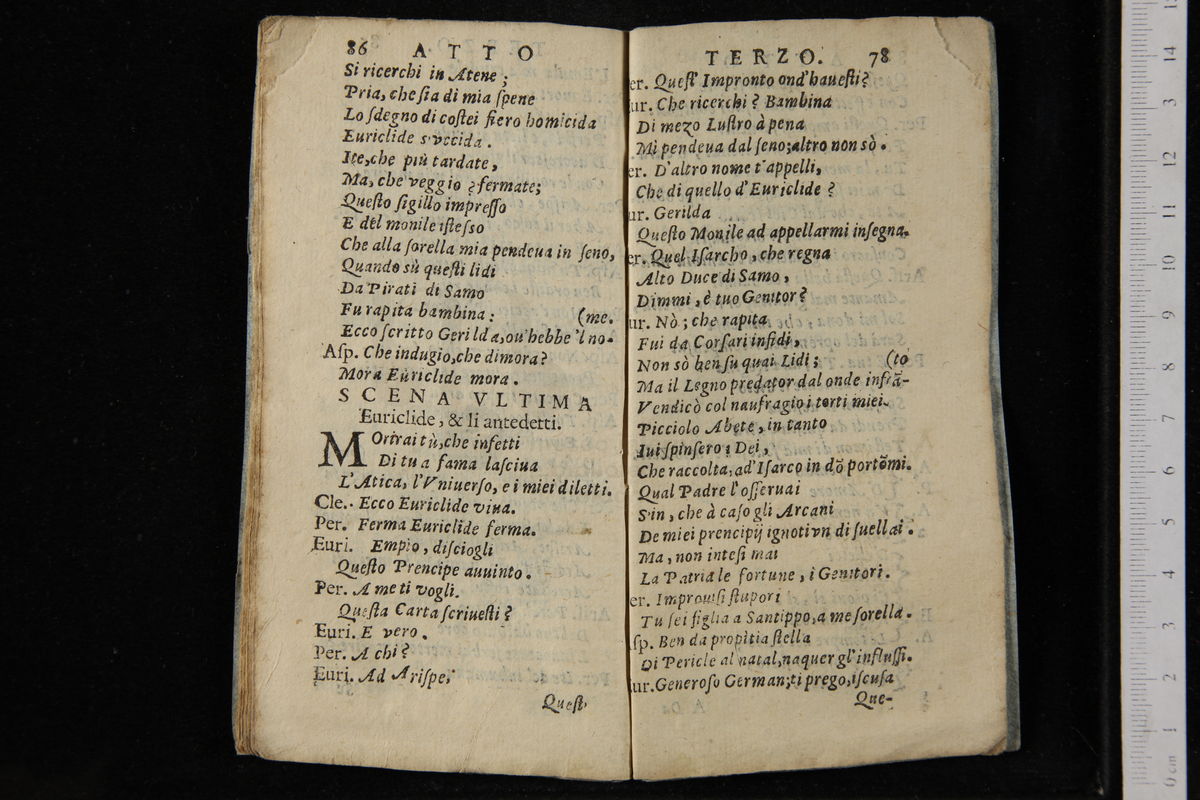 86 ATTO
Si ricerchi in Atene;
Pria, che ſia di mia ſpene
Lo ſdegno di coſtei fiero homicida
Euriclide s'vccida.
Ite, che più tardate,
Ma, che veggio ? fermate;
Queſto ſigillo impreſſo
E del monile iſteſso
Che alla ſorella mia pendeua in ſeno,
Quando sù queſti lidi
Da Pirati di Samo
Fu rapita bambina: (me.
Ecco ſcritto Gerilda, ou'hebbe 'l no-
Aſp. Che indugio, che dimora?
Mora Euriclide mora.
SCENA VLTIMA
Euriclide, & li antedetti.
MOrirai tù, che infetti
Di tua fama laſciua
L'Atica, l'Vniuerſo, e i miei diletti.
Cle. Ecco Euriclide viua.
Per. Ferma Euriclide ferma.
Euri. Empio, diſciogli
Queſto Prencipe auuinto.
Per. A me ti vogli.
Queſta Carta ſcriueſti?
Euri. E vero.
Per. A chi?
Euri. Ad Ariſpe;
Queſt'
TERZO. 78
er. Queſt' Impronto ond'haueſti?
ur. Che ricerchi? Bambina
Di mezo Luſtro à pena
Mi pendeua dal ſeno; altro non sò.
er. D'altro nome t'appelli,
Che di quello d'Euriclide?
ur. Gerilda
Queſto Monile ad appellarmi inſegna.
er. Quel Iſarcho, che regna
Alto Duce di Samo,
Dimmi, è tuo Genitor?
ur. Nò; che rapita
Fui da Corſari infidi,
Non sò ben ſu quai Lidi; (to
Ma il Legno predator dal onde infrā-
Vendicò col naufragio i torti miei.
Picciolo Abete, in tanto
Iui ſpinſero i Dei,
Che raccolta, ad'Iſarco in dō portōmi.
Qual Padre l'oſſeruai
Sin, che à caſo gli Arcani
De miei prencipij ignoti vn dì ſuellai.
Ma, non inteſi mai
La Patria le fortune, i Genitori.
er. Improuiſi ſtupori
Tu ſei figlia a Santippo, a me ſorella.
ſp. Ben da propitia ſtella
Di Pericle al natal, naquer gl'influſſi.
ur. Generoſo German; ti prego, iſcuſa
Que-